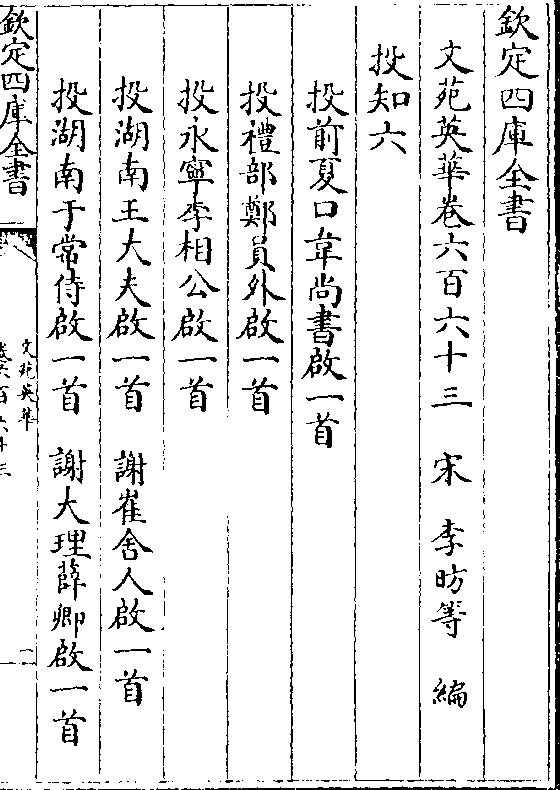 欽定四庫全書
文苑英華卷六百六十三　宋　李昉等　編
投知六
投前夏口韋尚書啟一首
投禮部鄭員外啟一首
投永寧李相公啟一首
投湖南王大夫啟一首　謝崔舍人啟一首
投湖南于常侍啟一首　謝大理薛卿啟一首
欽定四庫全書
文苑英華
卷六百六十三
一